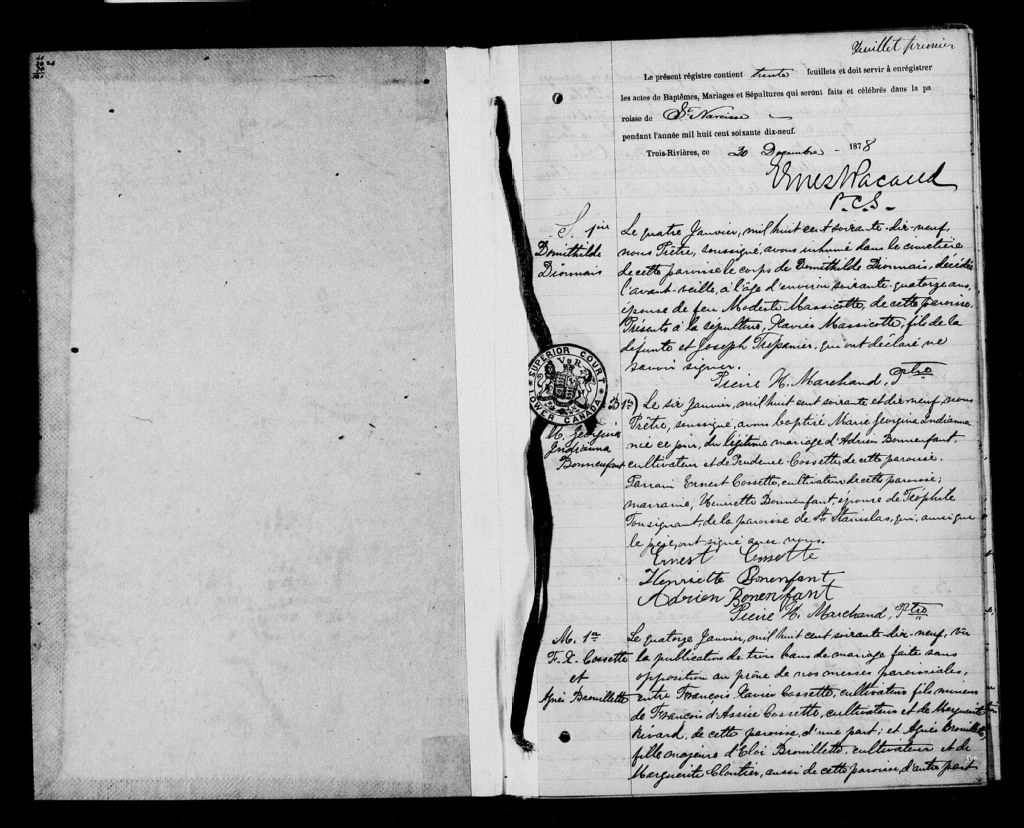 Feuillet premier
Le présent régistre contient trente feuillets et doit servir à enrégistrer
les actes de Baptêmes, Mariages et Sépultures qui seront faits et célébrés dans la pa
roisse de St Narcisse
pendant l'année mil huit cent soixante dix-neuf.
Trois-Rivières, ce 30 Decembre - 1878
Ernest Pacaud
P.C.S.
S. 1ère
Domithilde
Dionnais
Le quatre Janvier, mil huit cent soixante-dix-neuf,
nous Prêtre, soussigné, avons inhumé dans le cimetière
de cette paroisse le corps de Domithilde Dionnais, décédée
l'avant-veille, à l'âge d'environ soixante-quatorze ans,
épouse de feu Modeste Massicotte, de cette paroisse.
Présents à la sépulture, Xavier Massicotte, fils de la
défunte et Joseph Trépanier, qui ont déclaré ne
savoir signer.
Pierre H. Marchand, Ptre
SUPERIOR COURT
V R
LOWER CANADA
B 1er
M. Georgina
Indianna
Bonnenfant
Le six Janvier, mil huit cent soixante et dix-neuf, nous
Prêtre, soussigné, avons baptisé Marie Georgina Indianna
née ce jour, du légitime mariage d'Adrien Bonnenfant,
cultivateur et de Prudence Cossette, de cette paroisse.
Parrain Ernest Cossette, cultivateur de cette paroisse;
marraine, Henriette Bonnenfant, épouse de Téophile
Tousignant, de la paroisse de St Stanislas, qui, ainsi que
le père, ont signé avec nous.
Ernest Cossette
Henriette Bonenfant
Adrien Bonenfant
Pierre H. Marchand, Ptre
M. 1er
F-X- Cossette
et
Agnès Brouillette
Le quatorze Janvier, mil huit cent soixante-dix-neuf, vu
la publication de trois bans de mariage faite sans
opposition au prône de nos messes paroissiales,
entre François Xavier Cossette, cultivateur, fils mineur
de François d'Assise Cossette, cultivateur et de Marguerite
Rivard, de cette paroisse, d'une part; et Agnès Brouillette,
fille majeure d'Eloi Brouillette, cultivateur et de
Marguerite Cloutier, aussi de cette paroisse, d'autre part